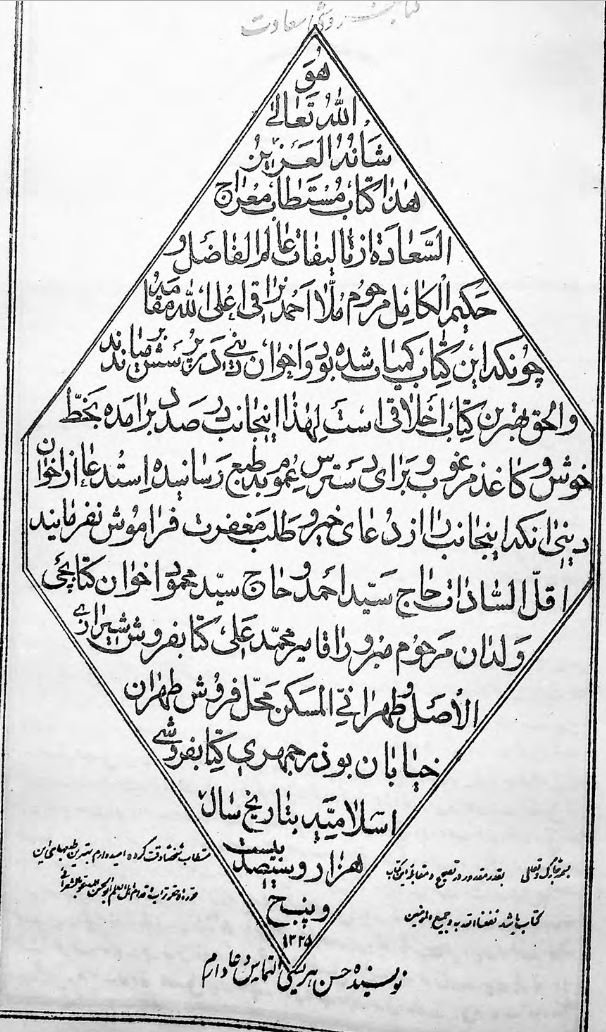 کتابفروشی سعادت
هو
الله تعالی
شانه العزیز
هذا کتاب مستطاب معراج
السعادة از تالیفات عالم الفاضل و
حکیم الکامل مرحوم ملا احمد نراقی اعلی الله مقامه
چونکه این کتاب کمیاب شده بود و اخوان دینی در پرسش بر میاندند
و الحق بهترین کتاب اخلاقی است لهذا اینجانب در صدد برآمده بخط
خوش و کاغذ مرغوب و برای دسترس عموم بطبع رسانیده استدعا از اخوان
دینی آنکه اینجانب را از دعای خیر و طلب مغفرت فراموش نفرمایند
اقل السادات حاج سید احمد و حاج سید محمود اخوان کتابچی
ولدان مرحوم مبرور آقا میر محمد علی کتابفروش شیرازی
الاصل و طهرانی المسکن محل فروش طهران
خیابان بوذرجمهری کتابفروشی
اسلامیه بتاریخ سال
هزار و سیصد بیست
و پنج
بقدر مقدور در تصحیح و مقابله این کتاب
مستطاب
کتاب باشد نفعنا الله به و جمیع المؤمنین
نویسنده حسن هریسی التماس دعا دارم